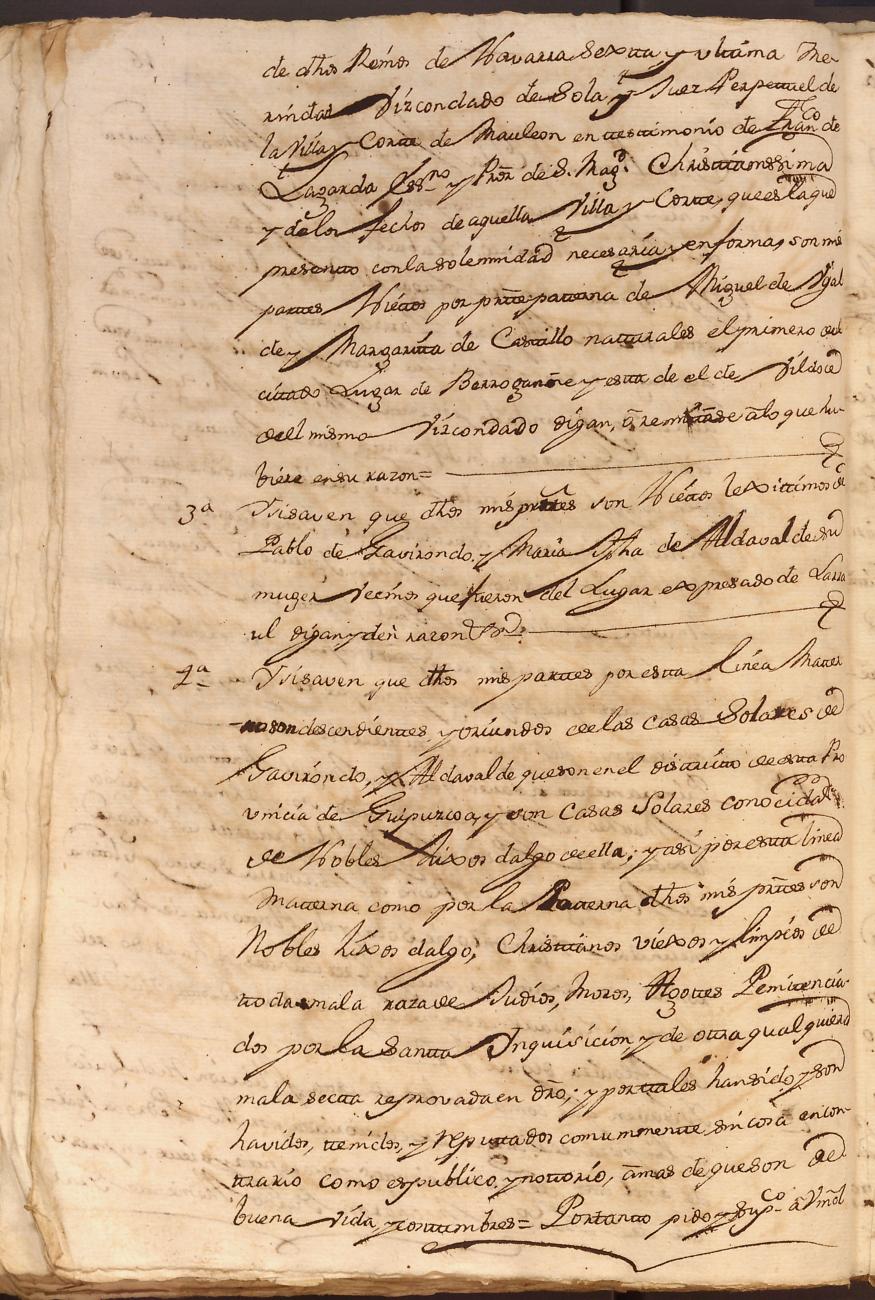 de dhos Reinos de Navarra Sexta y ultima Me-
rindad Vizcondado de Sola y Juez Perpetuel de
la Villa y Corte de Mauleon en testimonio de Franco de
Lagarda Essno y Pror de S. Magd. Christianissima
y de los fechos de aquella Villa y Corte, que es la que
presento con la solemnidad necesaria y en forma, son mis
partes Niettos por partte patterna de Miguel de Ygal
de y Margarita de Casttillo natturales el primero del
cittado Lugar de Berrogain e y estta de el de Vildoce
del mismo Vizcondado digan, q̃ remitiãse a lo que hu-
biere en su razon=
3a Ysi saven que dhos mis prttes son Niettos lexittimos de
Pablo de Gavirondo, y Maria Jpha de Aldavalde su
muger Vecinos que fueron del Lugar expresado de Larra
ul digan y den razon
4a Ysi saven que dhos mis parttes por estta linea Matter
na son descendienttes y oriundos de las casas Solares de
Gavirondo, y Aldavalde que son en el districto de estta Pro
vincia de Guipuzcoa, y son Casas Solares conocidas
de Nobles hixos dalgo de ella; y asi por estta linea
Matterna como por la Patterna dhos mis prttes son
Nobles hixos dalgo, Christtianos viexos y limpios de
ttoda mala raza de Judios, Moros, Agottes Penitencia-
dos por la Santta Ynquisicion y de ottra qualquiera
mala sectta reprovada en dro; y por ttales han sido y son
havidos, ttenidos, y reputtados comunmentte sin cosa en con-
ttrario como es publico, y nottorio, amas de que son de
buena vida, y costtumbres= Portanto pido y supco a Vmd